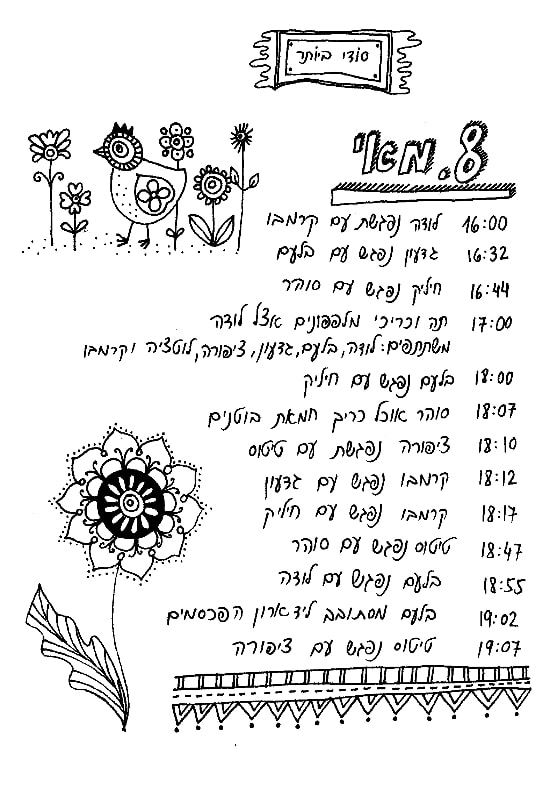 סודי ביותר
8. מאי
16:00 לודה נפגשת עם קרמבו
16:32 גדעון נפגש עם בלעם
16:44 חיליק נפגש עם סוהר
17:00 תה וכריכי מלפפונים אצל לודה
משתתפים: לודה, בלעם, גדעון, ציפורה, לוטציה וקרמבו
18:00 בלעם נפגש עם חיליק
18:07 סוהר אוכל כריך חמאת בוטנים
18:10 ציפורה נפגשת עם טיטוס
18:12 קרמבו נפגש עם גדעון
18:17 קרמבו נפגש עם חיליק
18:47 טיטוס נפגש עם סוהר
18:55 בלעם נפגש עם לודה
19:02 בלעם מסתובב ליד ארון הפרסמים
19:07 טיטוס נפגש עם ציפורה